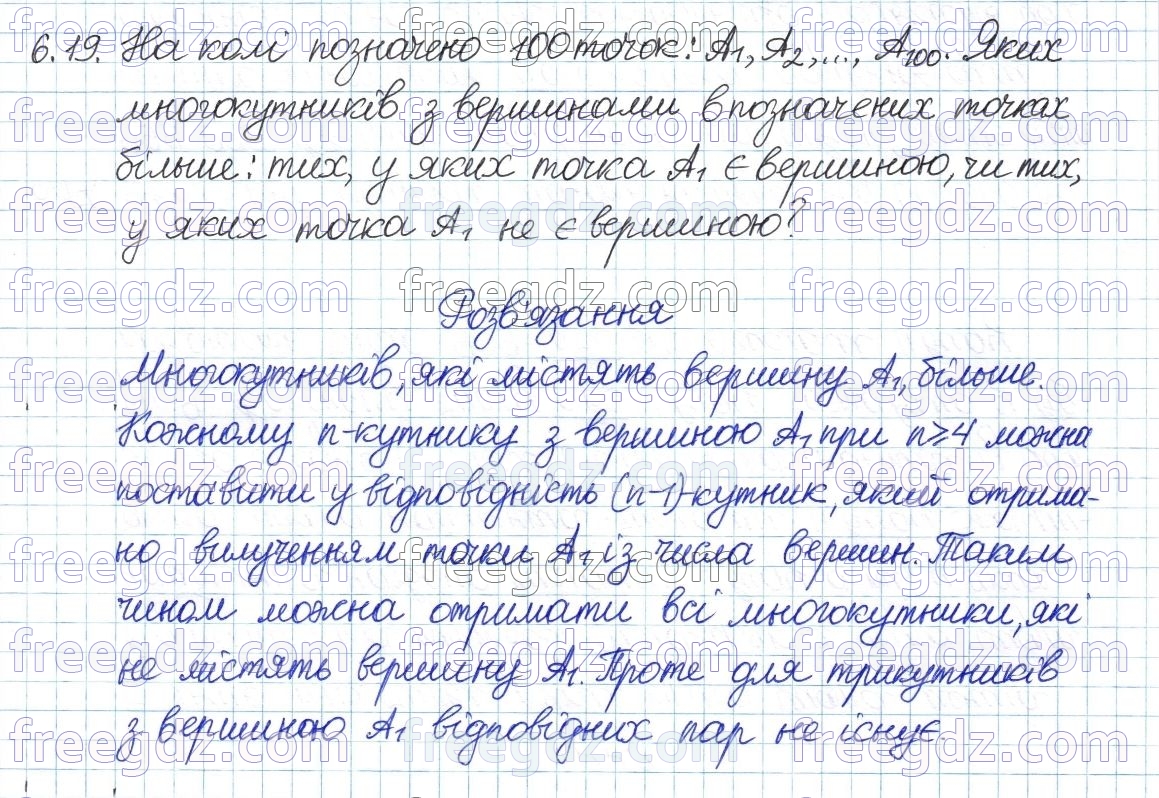 6.19. На колі позначено 100 точок: A₁, A₂, ..., A₁₀₀. Яких
многокутників з вершинами в позначених точках
більше: тих, у яких точка A₁ є вершиною, чи тих,
у яких точка A₁ не є вершиною?
Розв'язання
Многокутників, які містять вершину A₁, більше.
Кожному n-кутнику з вершиною A₁ при n⩾4 можна
поставити у відповідність (n-1)-кутник, який отрима-
но вилученням точки A₁ із числа вершин. Таким
чином можна отримати всі многокутники, які
не містять вершину A₁. Проте для трикутників
з вершиною A₁ відповідних пар не існує.
freegdz.com